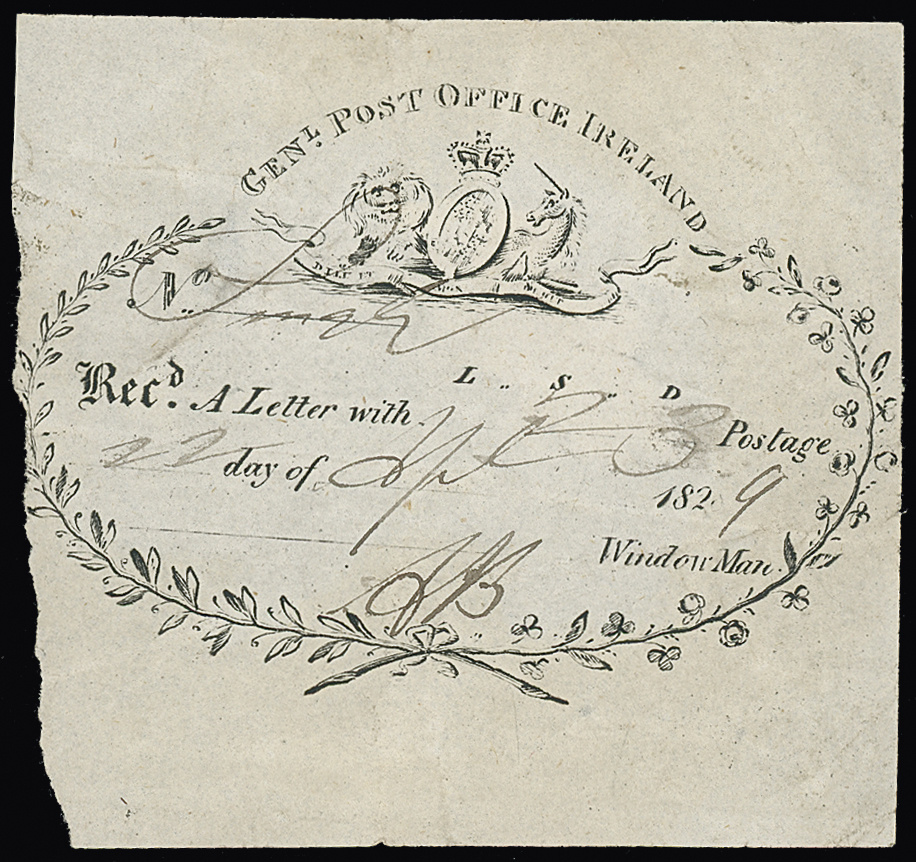 GENL. POST OFFICE IRELAND
DIEU ET MON
No.
L .. S .. D
Recd. A Letter with 3 Postage
22 day of Apl 1829
Window Man
AB